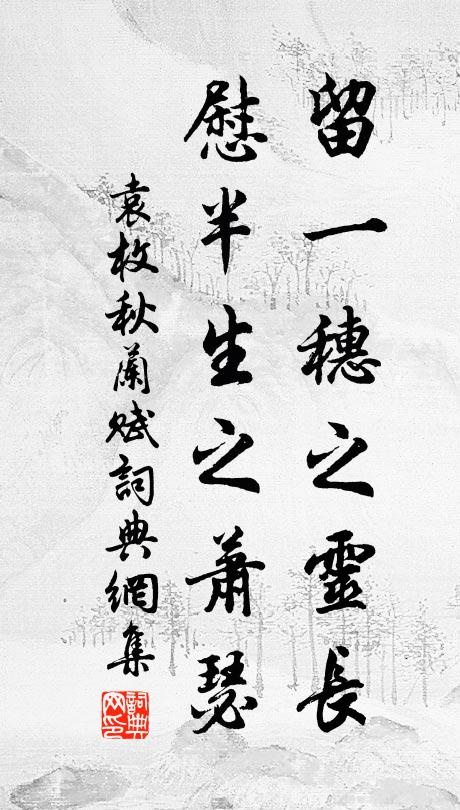 留一穗之靈長
慰半生之蕭瑟
袁枚秋蘭賦詞典網集
詞典
网印